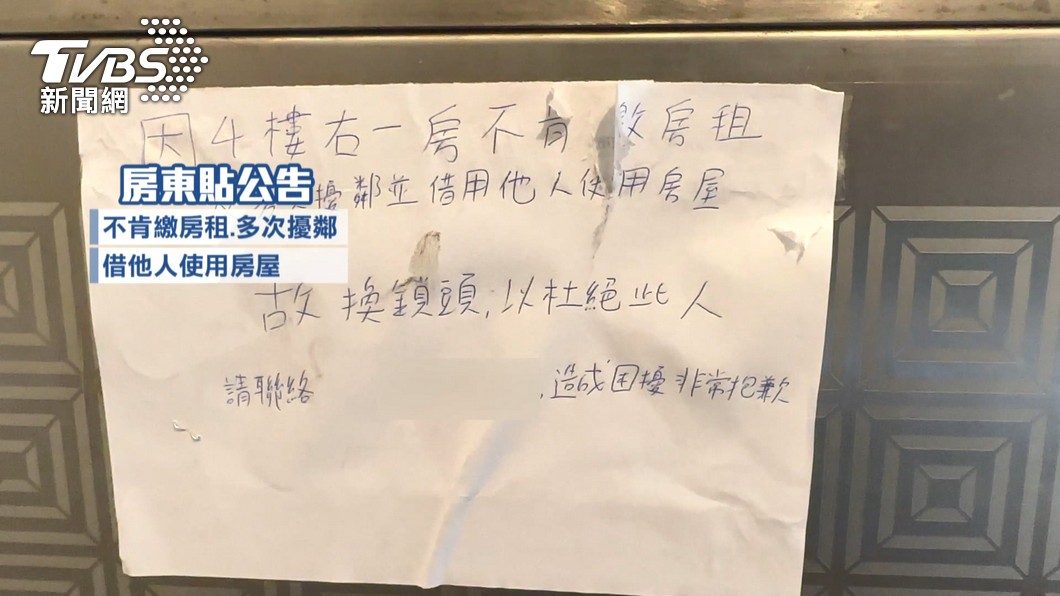 TVBS
新聞網
因4樓右一房不肯繳房租
房東貼公告
擾鄰並借用他人使用房屋
不肯繳房租.多次擾鄰
借他人使用房屋
故換鎖頭,以杜絕此人
請聯絡
,造成困擾非常抱歉